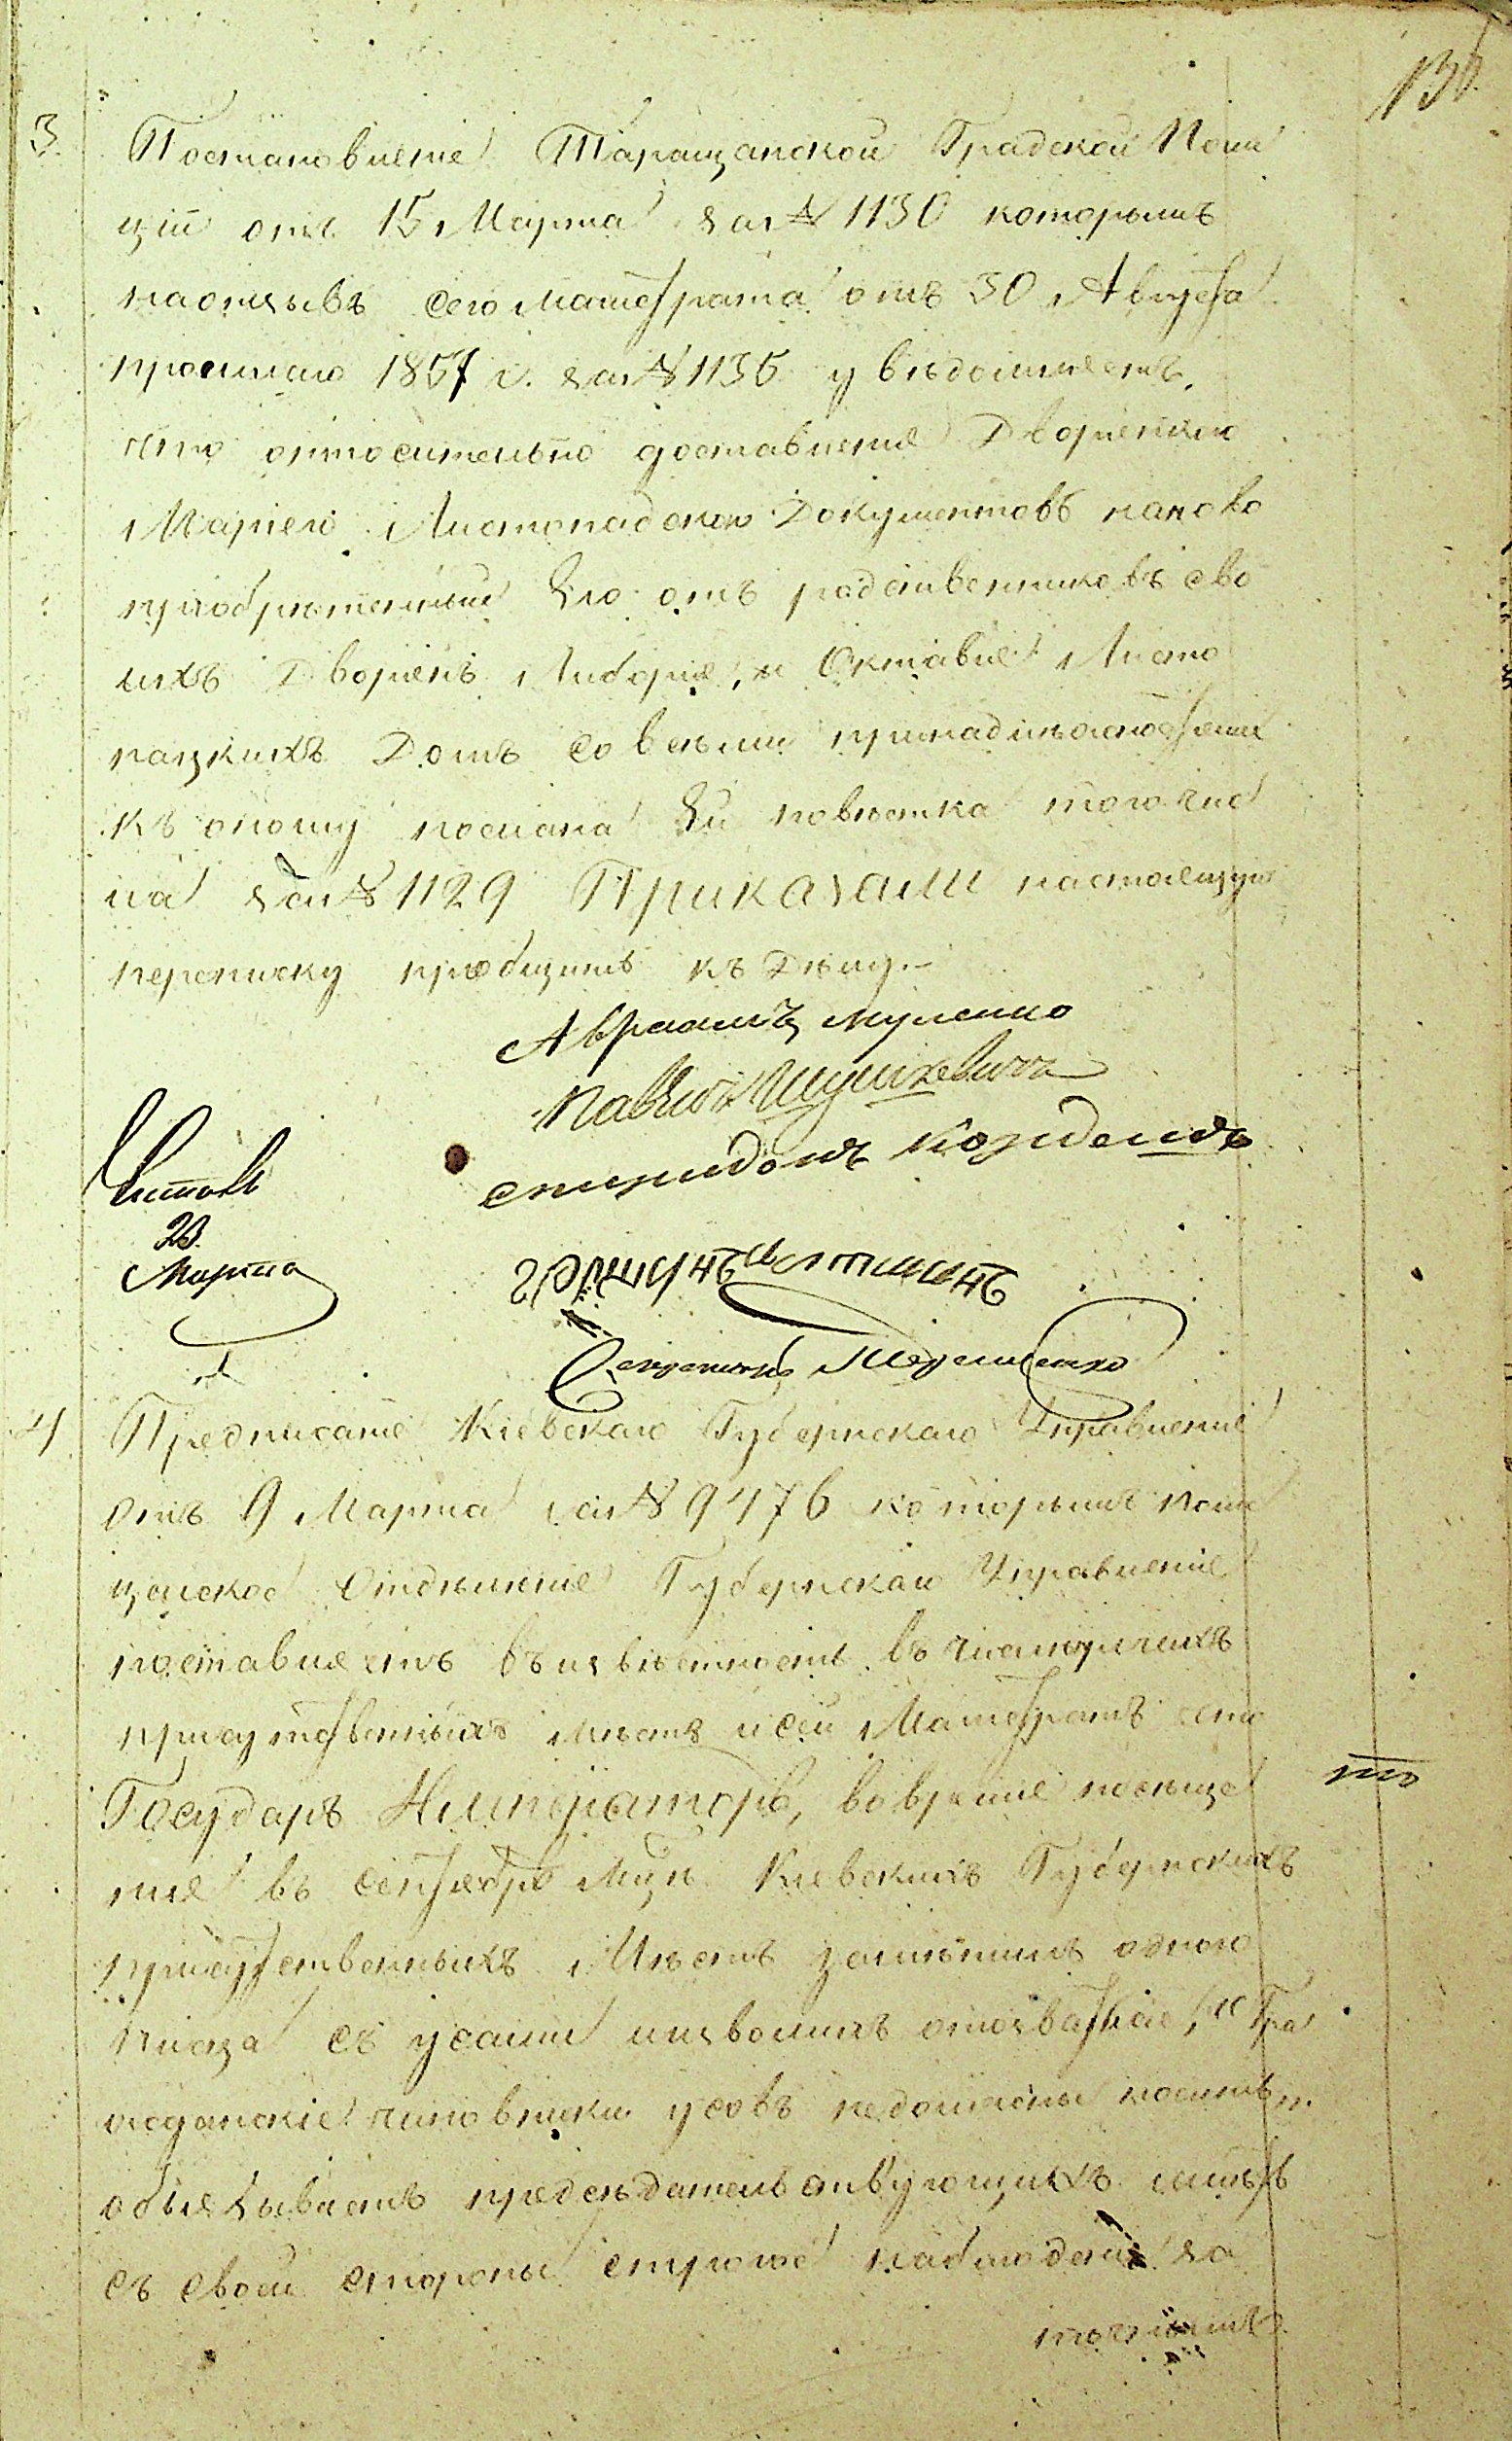 130.
3. Постановленіе Таращанской Градской Поли
ціи отъ 15 Марта за № 1130 которымъ
на отзывъ сего Магистрата отъ 30 Августа
прошлаго 1857 г. за № 1135 увѣдомляетъ,
что относительно доставленія Дворянкою
Маріею Листопадскою Документовъ на ново
пріобрѣтенный Ею отъ родственниковъ сво
ихъ Дворянъ Либорія, и Октавія Листо
пацкихъ Домъ со всѣми принадлѣжностями
къ оному послана Ей повѣстка того чис
ла за № 1129 Приказали настоящую
переписку пріобщить къ Дѣлу.–
Авраамъ
Павелъ Шулкевичъ
спиридонъ
Читалъ
23.
Марта
Секретарь
4 Предписаніе Кіевскаго Губернскаго Управленія
отъ 9 Марта за № 9476 которымъ Поли
цейское Отдѣленіе Губернскаго Управленія
поставляетъ въ извѣстность въ числѣ прочихъ
присутственныхъ мѣстъ и сей Магистратъ что
Государь Императоръ, во время посѣще
нія въ Сентябрѣ М-цѣ Кіевскихъ Губернскихъ
присутственныхъ Мѣстъ замѣтивъ одного
писца съ усами изволилъ отозваться, „Гра
жданскіе чиновники усовъ не должны носить„
обязываетъ предсѣдательствующихъ имѣть
съ своей стороны строгое наблюденіе за
точнымъ